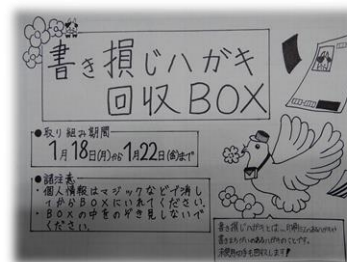 書き損じハガキ
回収BOX
●取り組み期間
1月18日(月)から1月22日(金)まで
●諸注意
・個人情報はマジックなどで消し
てからBOXにいれてください。
・BOXの中をのぞき見しないで
ください。
書き損じハガキとは…
書きまちがいのあるハガキのことです。
未使用切手も回収します!